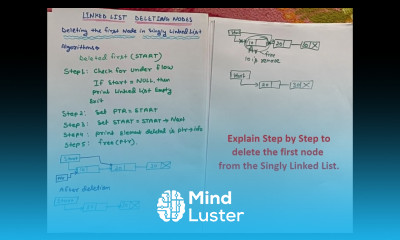 LINKED LIST DELETING NODES
Deleting the First Node in Singly Linked List
Algorithm:
Deleted first (START)
Step1: Check for Under flow
If Start = NULL, then
print Linked List Empty
Exit
Step2: Set PTR = START
Step3: Set START = START → Next
Step4: print Element deleted is ptr → info
Step5: free (PTR).
Start
After deletion
Start
Start
free
10 is remove
Start
201
Explain Step by Step to
delete the first node
from the Singly Linked List.
Mind
Luster